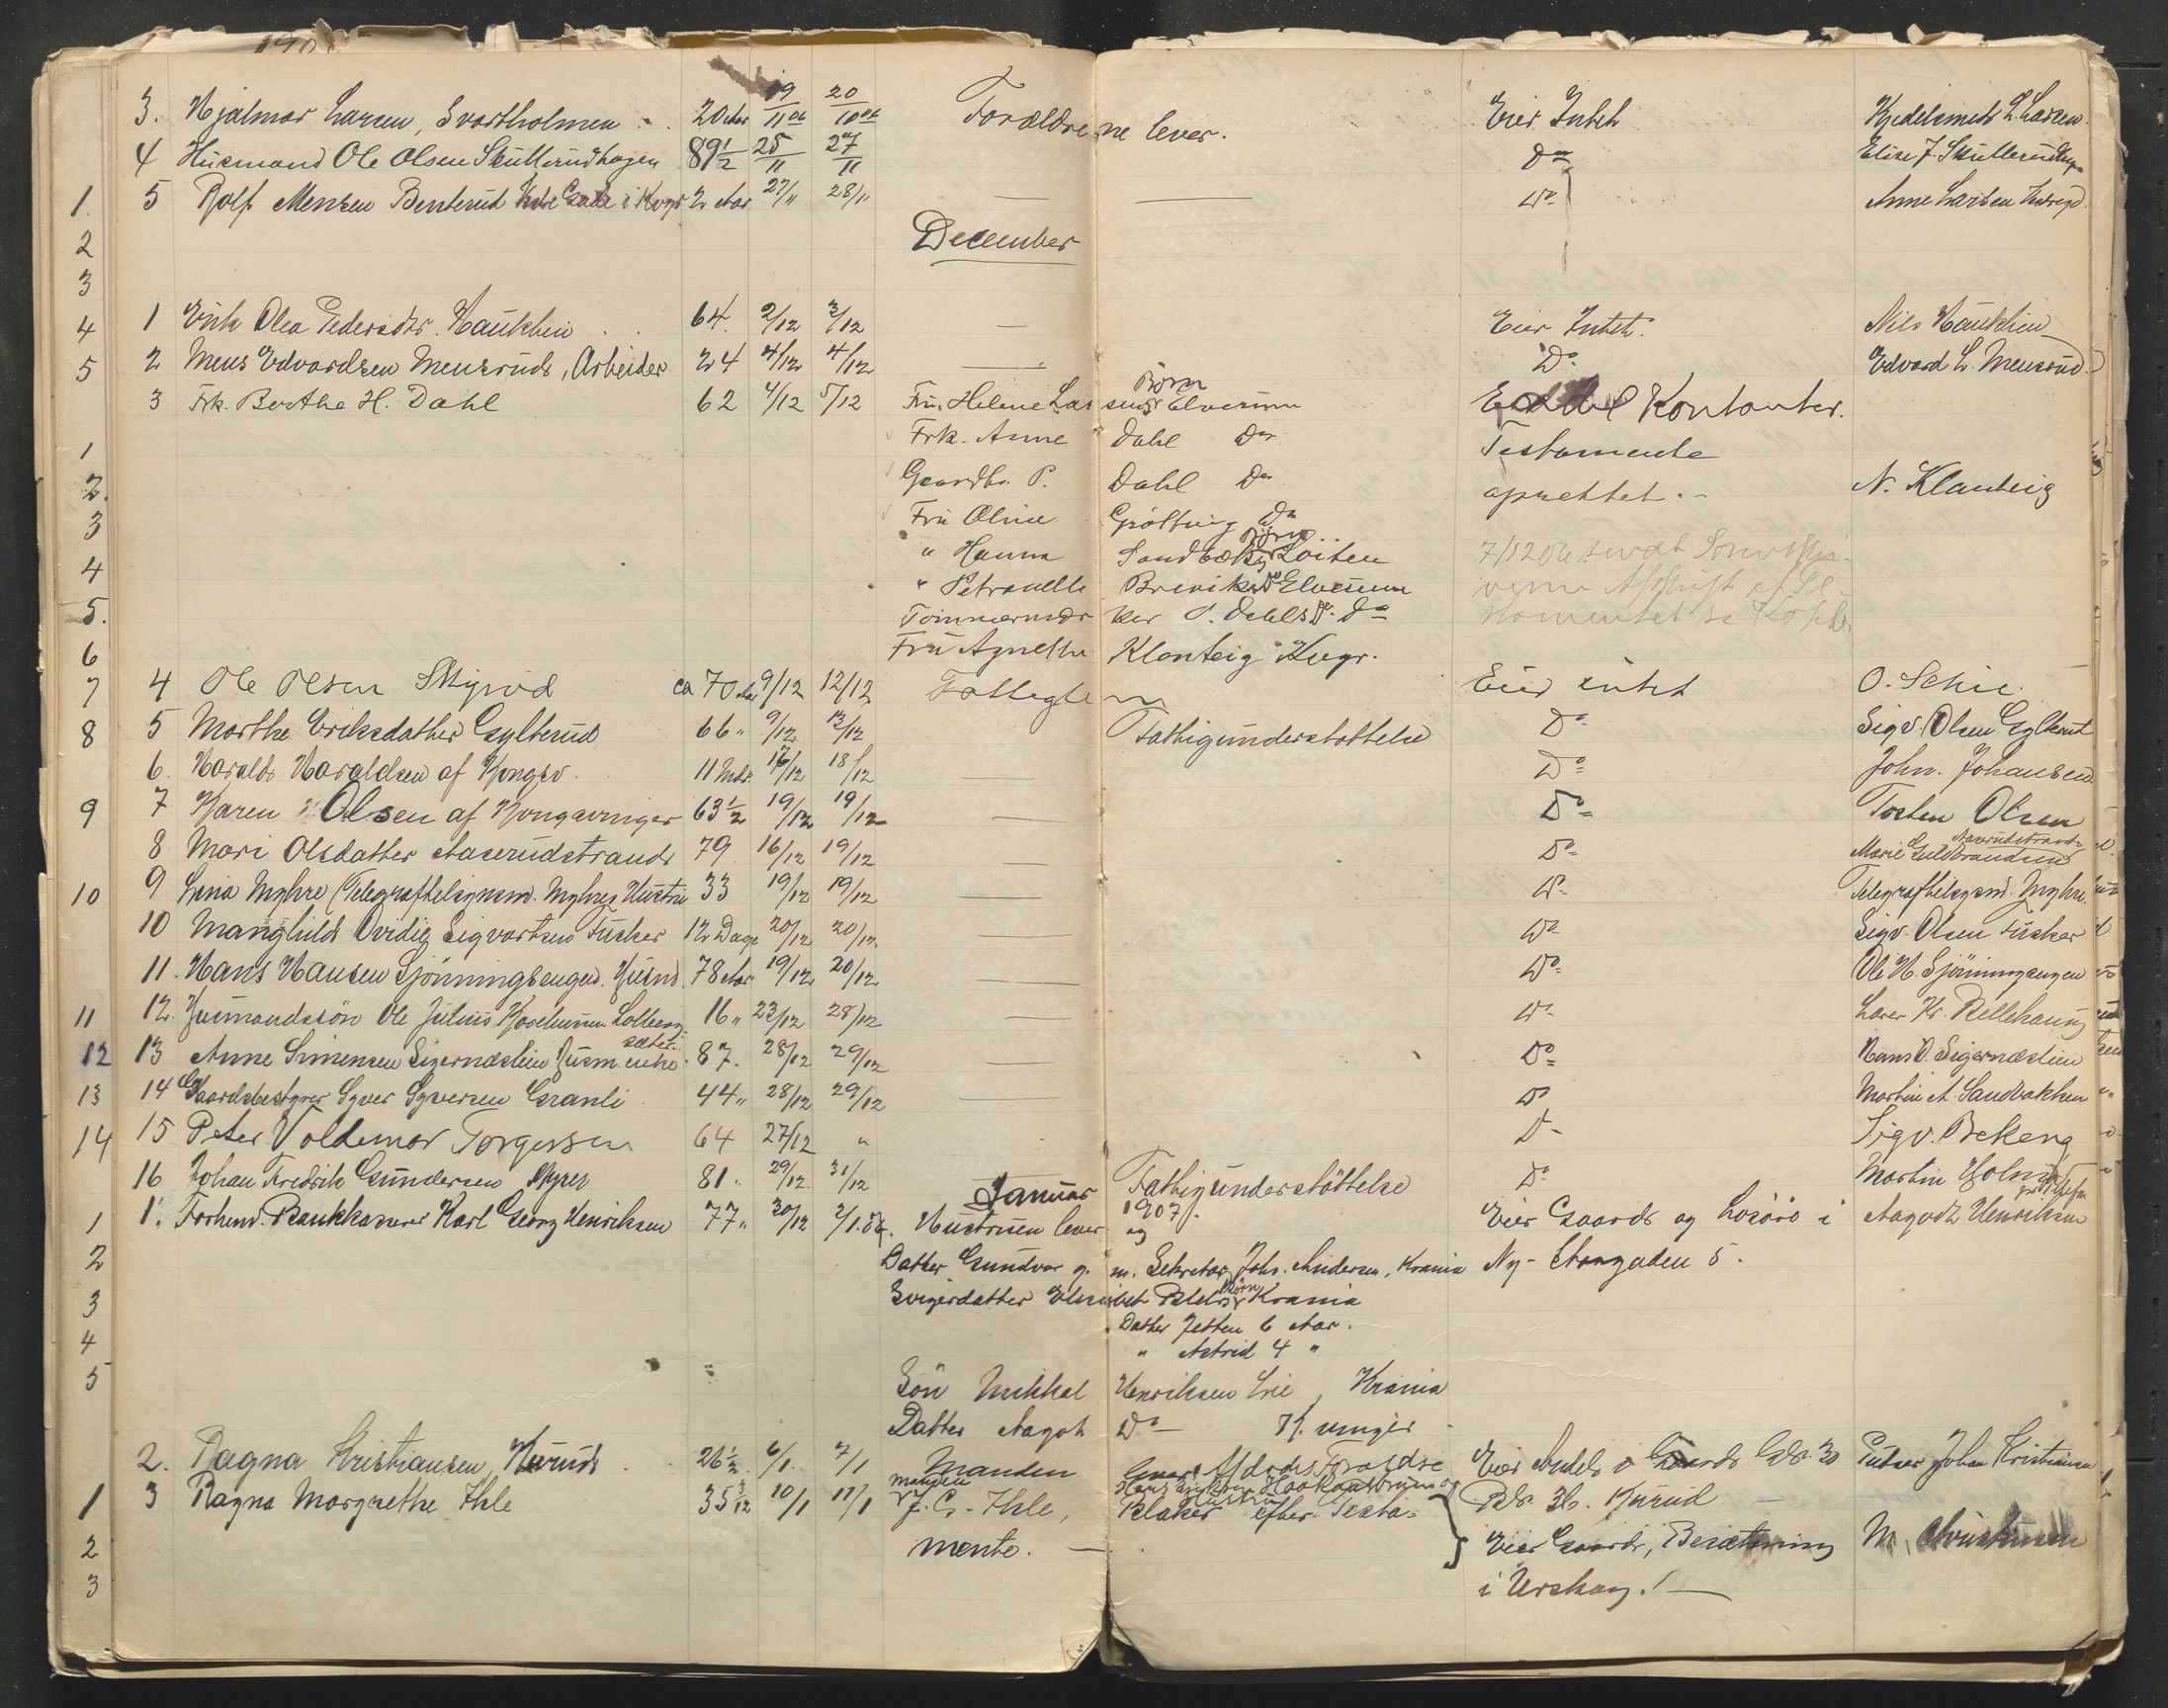 3. Hjalmar Larsen, Svartholmen 20 Aar 19/11 06 20/11 06 Forældrene lever. Eier Intet Kjedelsmed L. Larsen
4 Husmand Ole Olsen Skullerudhagen 89 1/2 25/11 27/11 Do Elise J. Skullerudhagen
1. 5 Rolf Mensen Benterud 2 Aar 27/11 28/11 — — Do Anne Larsen
December
2
3
4 1 Enke Olea Pedersdtr. Haukhein 64. 2/12 3/12 — Eier Intet. Nils Haukhein
5 2 Mens Edvardsen Mensrud, Arbeider 24 4/12 4/12 — Do Edvard L. Mensrud
3 Frk. Berthe H. Dahl 62 4/12 5/12 Fru Helene Larsens Børn Elverum Kontanter.
1 Frk. Anne Dahl Do Testamente
2. Gaardbr. P. Dahl Do oprettet. - N. Klanteig
3 Fru Oline Grøtting Do
4 " Hanna Sandbæks Børn Løiten 7/12 06 sendt
" Petronelle Breviks Do Elverum Afskrift af
5. Tømmermærker P. Dahls Do Do
6 Fru Agnethe Klanteig Kvgr.
7 4 Ole Olsen Skyrud ca 70 Aar 9/12 12/12 Fattiglem Eier intet O. Schie.
8 5 Marthe Eriksdatter Gylterud 66 " 9/12 13/12 Fattigunderstøttelse Do Sigv. Olsen Gylterud
6. Harald Haraldsen af Kongsv. 11 Mdr. 17/12 18/12 — Do John. Johansen
9 7 Karen Olsen af Kongsvinger 63 1/2 19/12 19/12 — Do Tosten Olsen
8 Mari Olsdatter Aaserudstrand 79 16/12 19/12 — Do Marie Guldbrandsen Aaserudstrand
10 9 Lovia Myhre (Telegrafbetjensm. Myhres Hustru 33 19/12 19/12 — Do Telegrafbetjensm. Myhre.
10 Manghild Ovidie Sigvartsen Fusker 12 Dage 20/12 20/12 — Do Sigv. Olsen Fusker
11. Hans Hansen Sjönningsengen. Husmd. 78 Aar 19/12 20/12 — Do Ole H. Sjönningsengen
11 12. Husmandssön Ole Julius Solberg 16 " 23/12 28/12 — Do Lærer Kr. Bellehaug
12 13 Anne Simensen Sigernæsseter Husm. enke 87. 28/12 29/12 — Do Hans O. Sigernæstien
13 14 Gaardsbestyrer Syver Syversen Granli 44 " 28/12 29/12 — Do Martin A. Sandbakken
14 15 Peter Voldemar Torgersen 64 27/12 " D - Sigv. Bekeng
16 Johan Fredrik Gundersen Myrer 81 " 29/12 31/12 Fattigunderstöttelse Do Martin Holm
Januar 1907.
1 1. Forhend. Bankkasserer Karl Georg Henriksen 77 " 30/12 2/1.07. Hustruen lever og Eier Gaard og Løsøre i Aagodt Henriksen
2 Datter Gundvor g. m. Sekretær Johs. Andersen, Krania Ny - Storgaden 5.
3 Svigerdatter Elisabet Børn Krania
Datter Jetten 6 Aar.
4 " Astrid 4 "
5 Sön Mikkel Henriksen Lie, Krania
Datter Aagot Do — Kf. vinger
2. Ragna Kristiansen, Kurud 26 1/2 6/1 7/1 Manden lever. Afdødes Forældre Eier Andel i Gaard Gdr. 30 Pudser Johan Kristiansen
Br. 36. Kurud
1 3 Ragna Margrethe Ihle 35 3/12 10/1 11/1 Manden J. C. Ihle, Blaker efter Testamente. — Eier Gaard, Besætning M. Christiansen
2 i Urskog. —
3